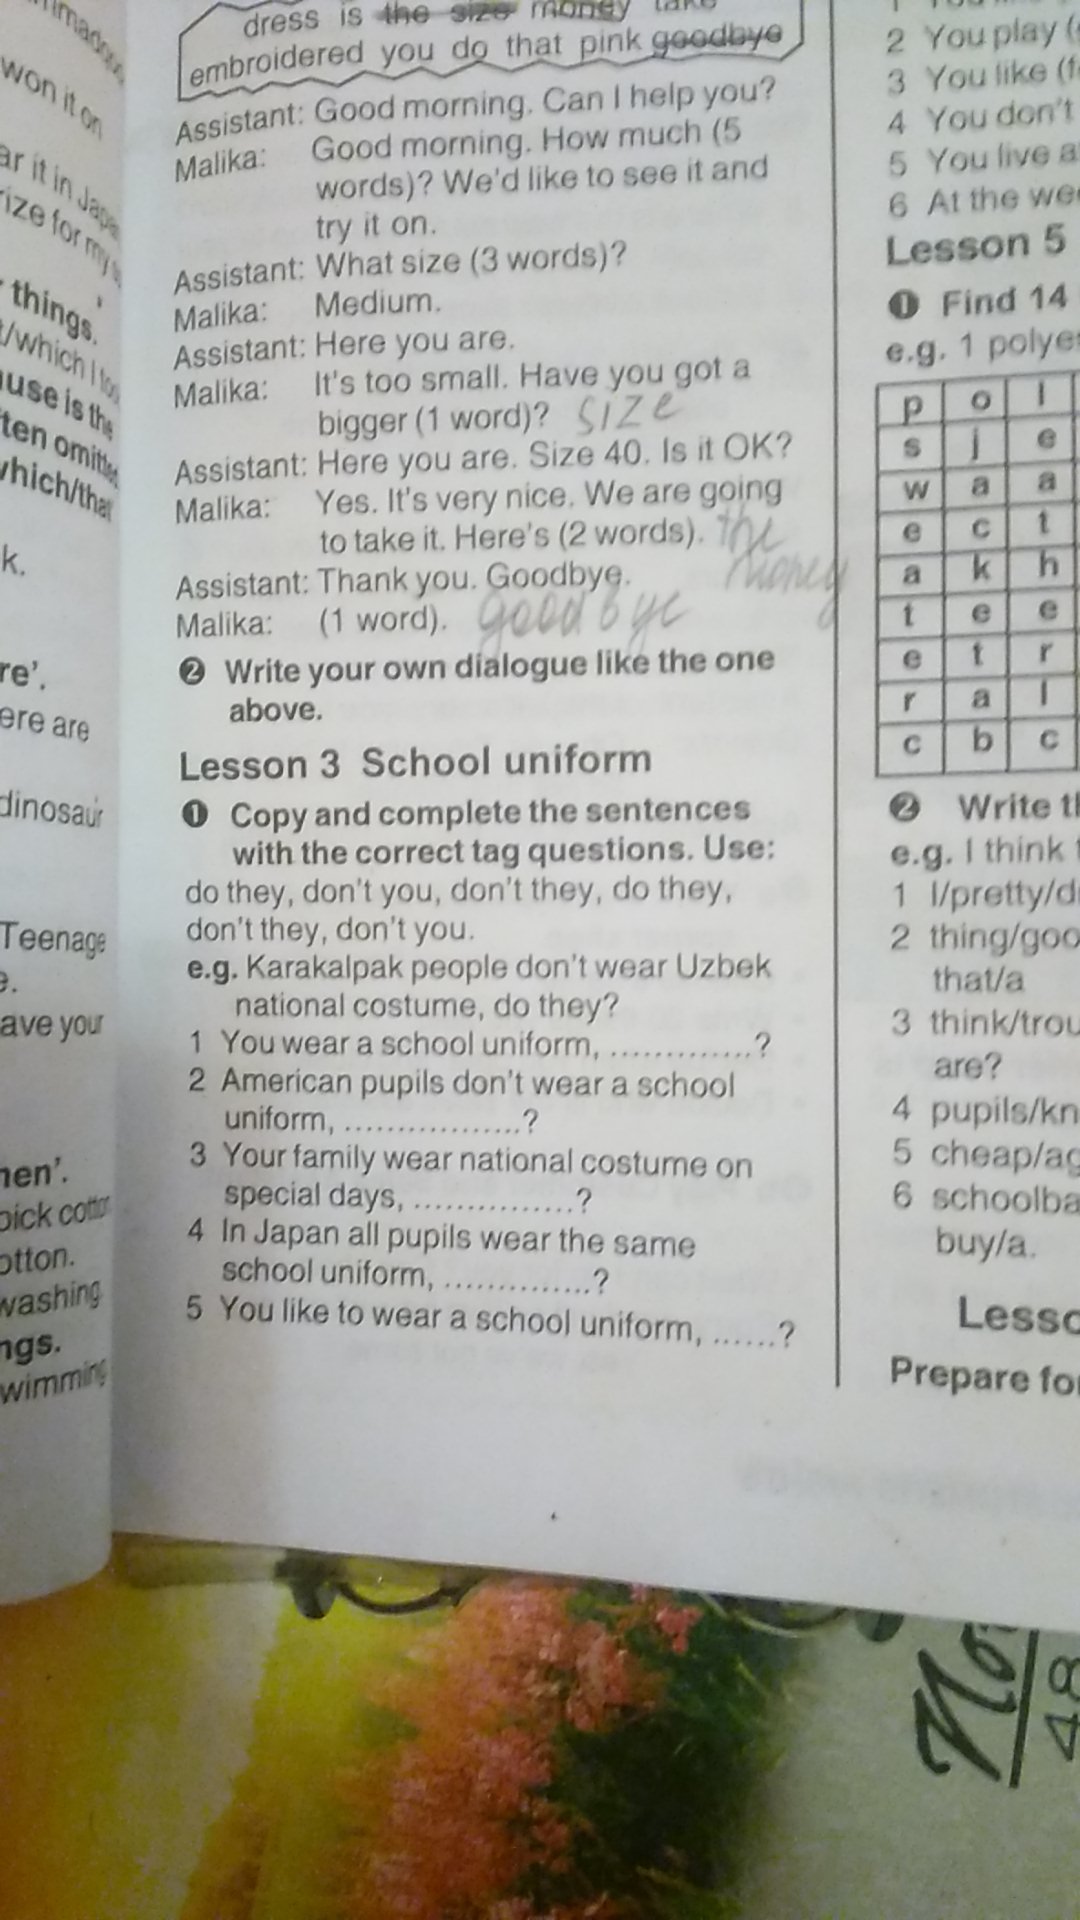 won it on
ar it in Japan
rize for my
things.
/which I too
use is the
ten omitted
which/that
k.
re'.
ere are
dinosaur
Teenage
e.
ave your
nen'.
pick cotton
otton.
washing
ngs.
wimming
dress is the size money take
embroidered you do that pink goodbye
Assistant: Good morning. Can I help you?
Malika: Good morning. How much (5
words)? We'd like to see it and
try it on.
Assistant: What size (3 words)?
Malika: Medium.
Assistant: Here you are.
Malika: It's too small. Have you got a
bigger (1 word)? size
Assistant: Here you are. Size 40. Is it OK?
Malika: Yes. It's very nice. We are going
to take it. Here's (2 words). the
money
Assistant: Thank you. Goodbye.
Malika: (1 word). goodbye
2 Write your own dialogue like the one
above.
Lesson 3 School uniform
1 Copy and complete the sentences
with the correct tag questions. Use:
do they, don't you, don't they, do they,
don't they, don't you.
e.g. Karakalpak people don't wear Uzbek
national costume, do they?
1 You wear a school uniform, ..............?
2 American pupils don't wear a school
uniform, ..................?
3 Your family wear national costume on
special days, ................?
4 In Japan all pupils wear the same
school uniform, ...............?
5 You like to wear a school uniform, ......?
2 You play (
3 You like (f
4 You don't
5 You live a
6 At the wee
Lesson 5
1 Find 14
e.g. 1 polyes
p o l
s j e
w a a
e c t
a k h
t e e
e t r
r a l
c b c
2 Write th
e.g. I think t
1 I/pretty/d
2 thing/goo
that/a
3 think/trou
are?
4 pupils/kn
5 cheap/ag
6 schoolba
buy/a.
Lesso
Prepare for
48